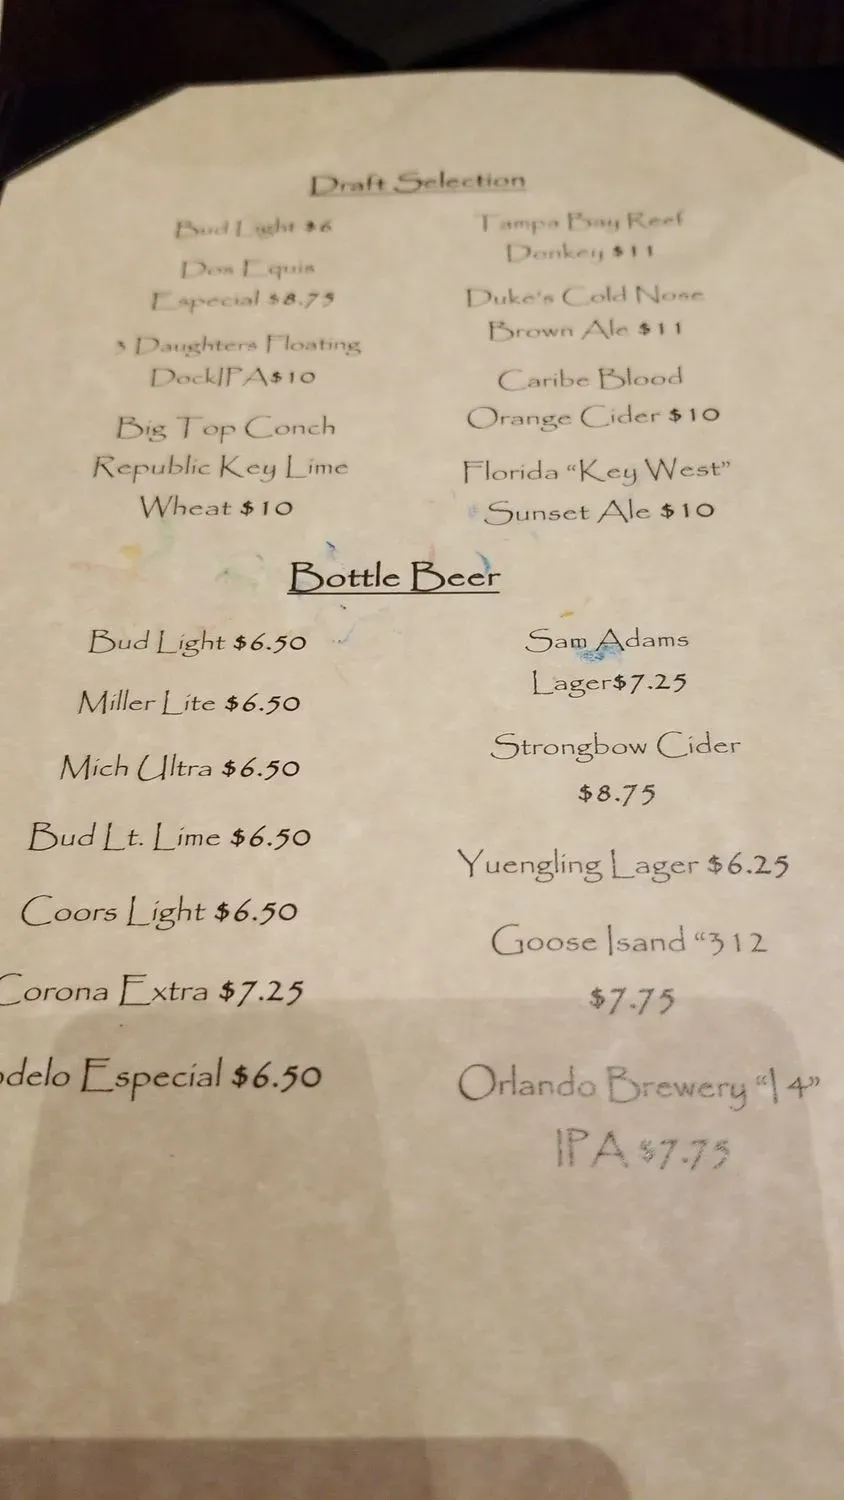 Draft Selection
Bud Light $6
Dos Equis
Especial $8.75
3 Daughters Floating
DockIPA$10
Big Top Conch
Republic Key Lime
Wheat $10
Tampa Bay Reef
Donkey $11
Duke's Cold Nose
Brown Ale $11
Caribe Blood
Orange Cider $10
Florida “Key West”
Sunset Ale $10
Bottle Beer
Bud Light $6.50
Miller Lite $6.50
Mich Ultra $6.50
Bud Lt. Lime $6.50
Coors Light $6.50
Corona Extra $7.25
odelo Especial $6.50
Sam Adams
Lager$7.25
Strongbow Cider
$8.75
Yuengling Lager $6.25
Goose Isand “312
$7.75
Orlando Brewery “I 4”
IPA $7.75